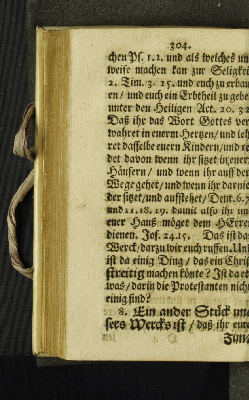 304.
chen Ps. 1. 2. und als welches un
weise machen kan zur Seligkei
2. Tim. 3. 15. und euch zu erbau
en/ und euch ein Erbtheil zu gebe
unter den Heiligen Act. 20. 32
Daß ihr das Wort Gottes ver
wahret in euerm Hertzen/ und leh
ret dasselbe euern Kindern/ und re
det davon wenn ihr sitzet in euern
Häusern/ und wenn ihr auff dem
Wege gehet/ und wenn ihr darni
der sitzet/ und auffstehet/ Deut. 6. 7
und 11. 18. 19. damit also ihr un
euer Hauß möget dem HErrn
dienen. Jos. 24. 15. Das ist da
Werck/ darzu wir euch ruffen. Und
ist da einig Ding/ das ein Christ
streitig machen könte? Ist da et
was/ darin die Protestanten nicht
einig sind?
8. Ein ander Stück un
sers Wercks ist/ daß ihr eure